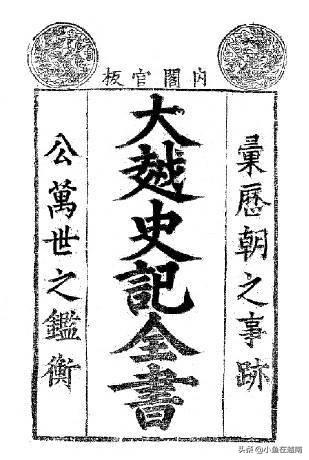 內閣官板
彙歷朝之事跡
大越史記全書
公萬世之鑑衡
头条 @小鱼在越南